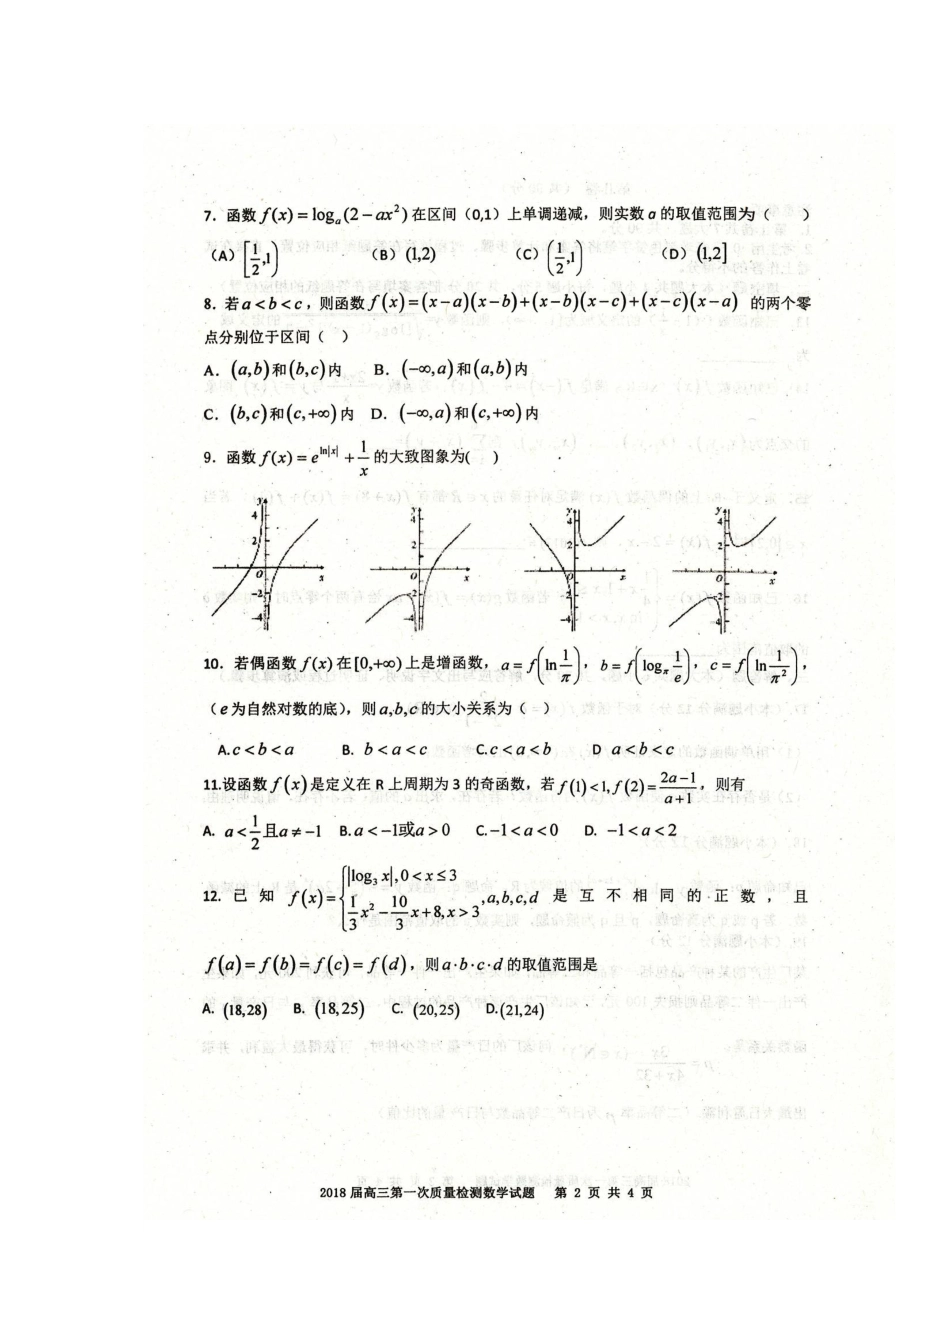 7. 函数 f(x) = logₐ(2 − ax²) 在区间（0,1）上单调递减，则实数 a 的取值范围为（ ）
（A）[1/2,1) （B）(1,2) （C）(1/2,1) （D）(1,2]
8. 若 a < b < c，则函数 f(x) = (x−a)(x−b)+(x−b)(x−c)+(x−c)(x−a) 的两个零
点分别位于区间（ ）
A. (a,b) 和 (b,c) 内 B. (−∞,a) 和 (a,b) 内
C. (b,c) 和 (c,+∞) 内 D. (−∞,a) 和 (c,+∞) 内
9. 函数 f(x) = e^{ln|x|} + 1/x 的大致图象为( )
10. 若偶函数 f(x) 在[0,+∞) 上是增函数，a = f(ln 1/π)，b = f(log_π 1/e)，c = f(ln 1/π²)，
（e 为自然对数的底），则 a,b,c 的大小关系为（ ）
A. c < b < a B. b < a < c C. c < a < b D a < b < c
11.设函数 f(x) 是定义在 R 上周期为 3 的奇函数，若 f(1) < 1, f(2) = (2a−1)/(a+1)，则有
A. a < 1/2 且 a ≠ −1 B. a < −1 或 a > 0 C. −1 < a < 0 D. −1 < a < 2
12. 已知 f(x) = { |log₃ x|, 0 < x ≤ 3 ; 1/3 x² − 10/3 x + 8, x > 3 , a,b,c,d 是互不相同的正数，且
f(a) = f(b) = f(c) = f(d)，则 a·b·c·d 的取值范围是
A. (18,28) B. (18,25) C. (20,25) D. (21,24)
2018 届高三第一次质量检测数学试题 第 2 页 共 4 页